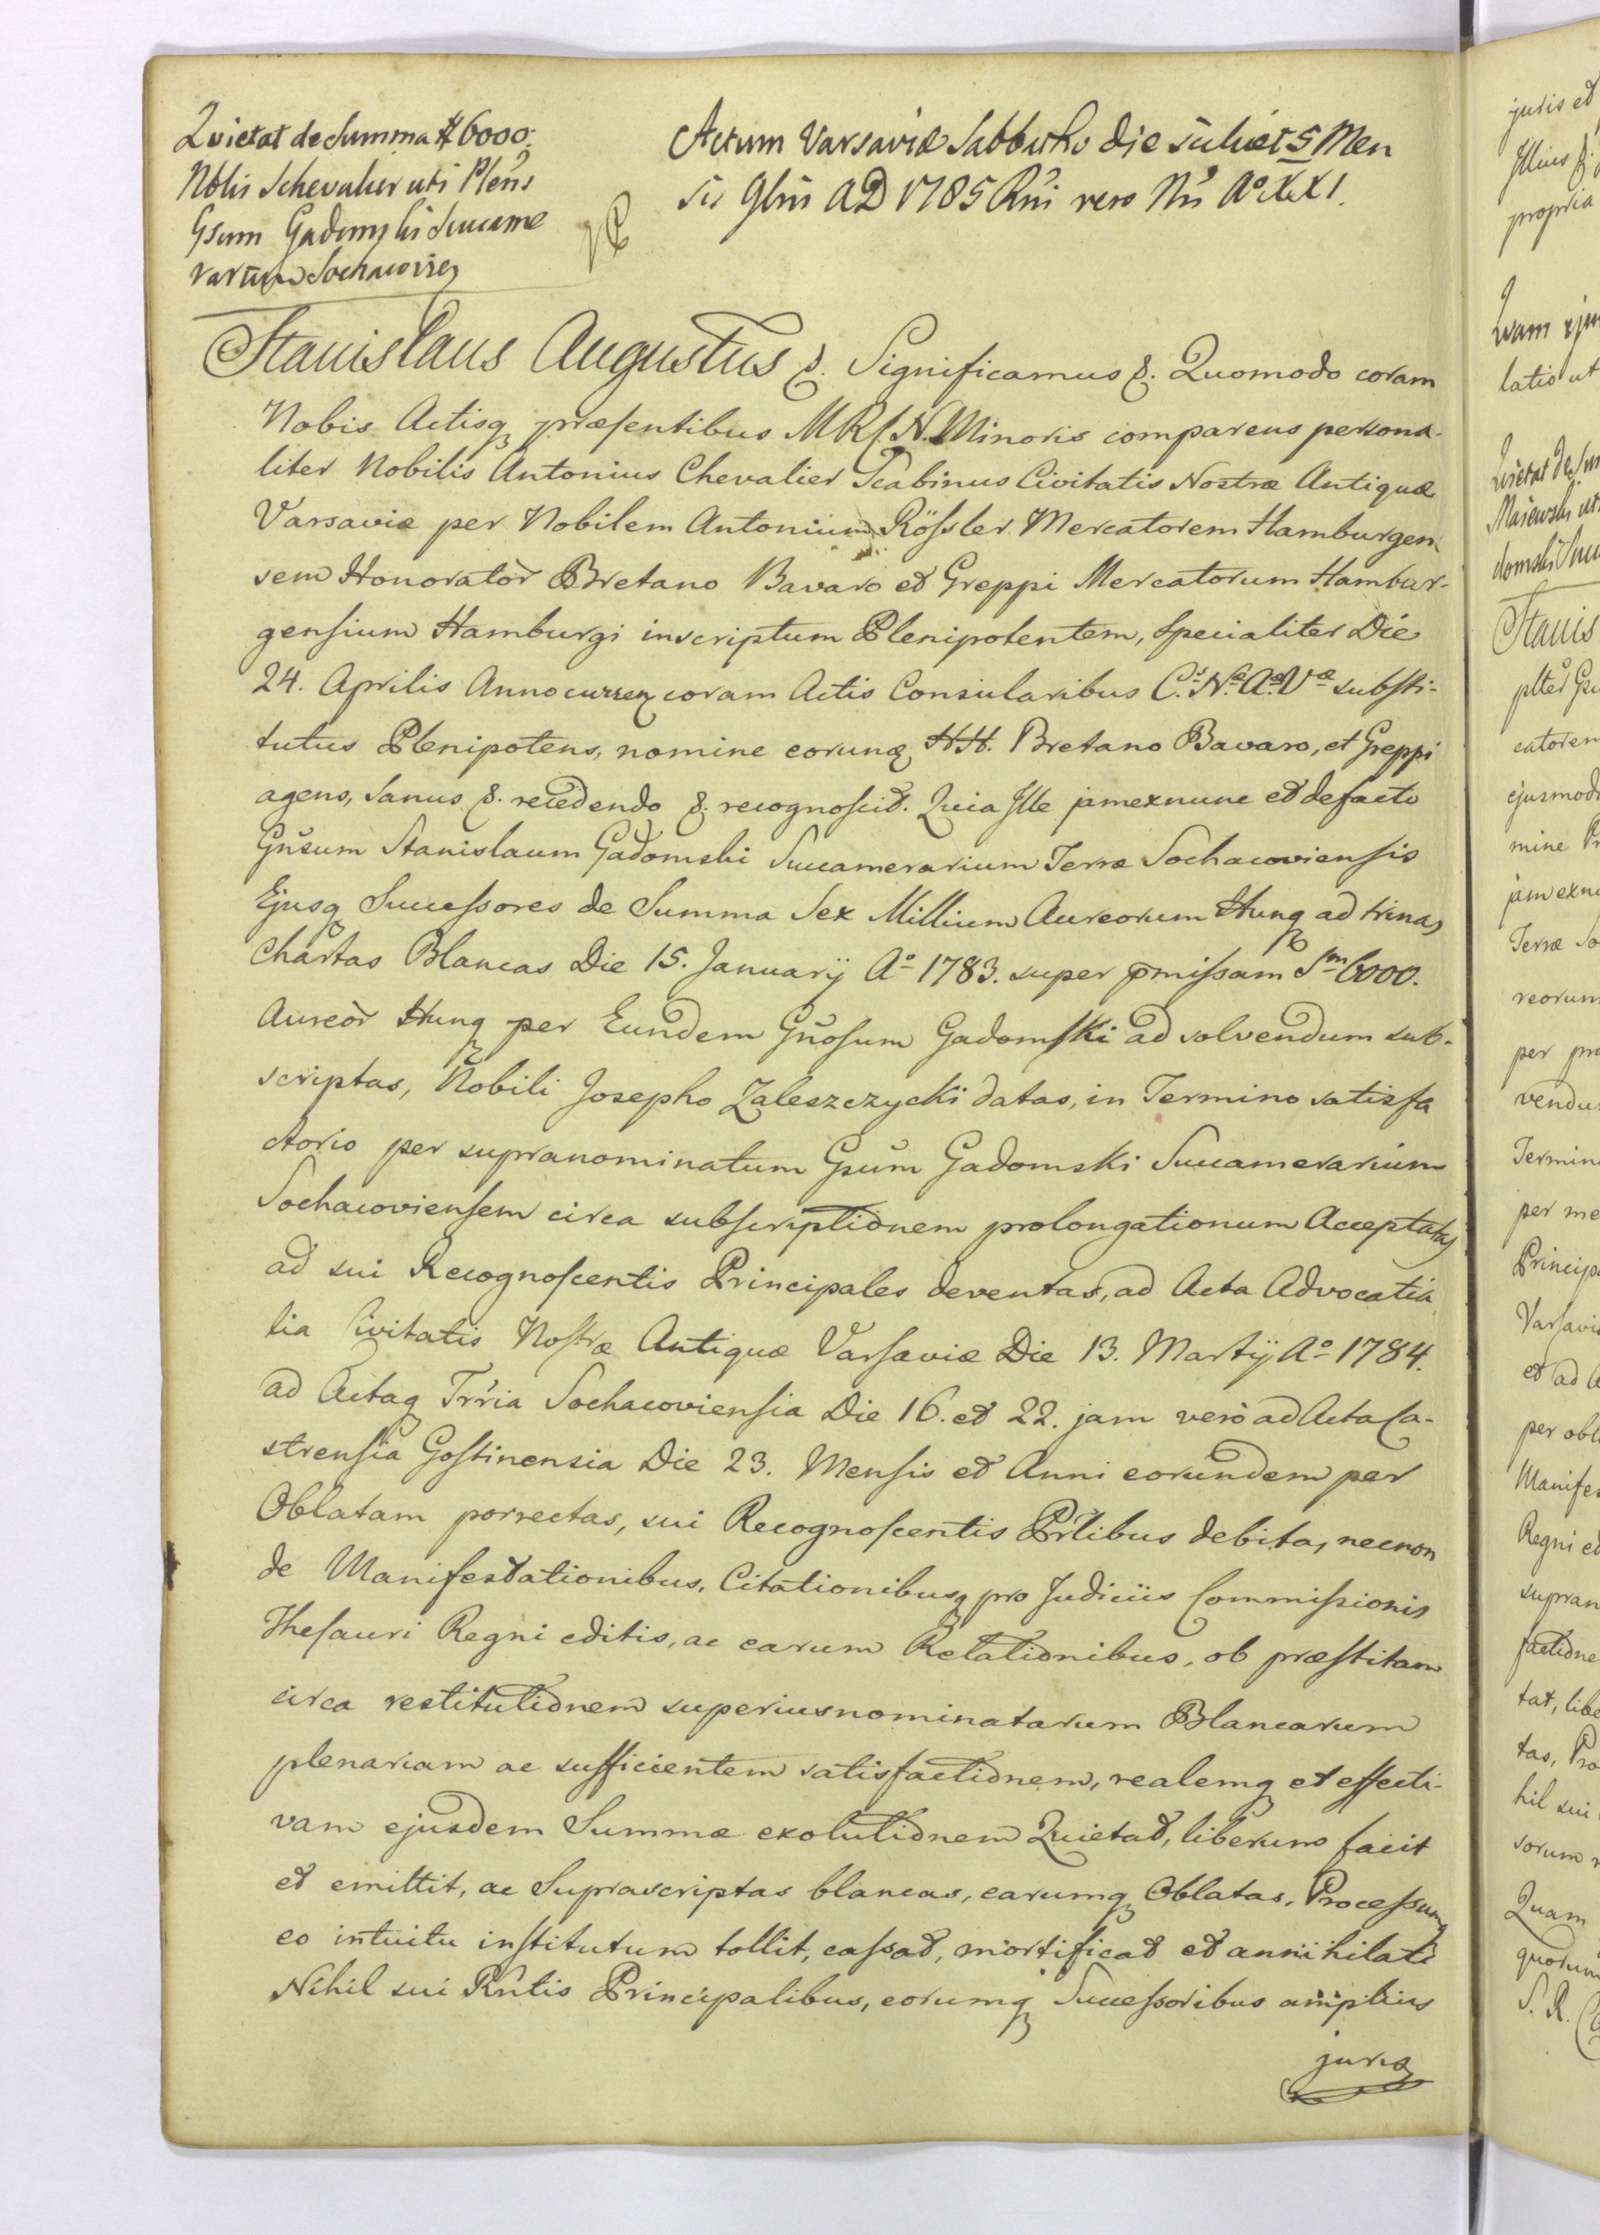 Quietat de Summa # 6000.
Nblis Schevalier uti Plens
Gsum Gadomski Succame
rarium Sochaovien
Actum Varsaviæ Sabbatho die scilicet 5 Men
sis 9bris AD 1785 Rni vero Nri Aº XXI.
Stanislaus Augustus &. Significamus &. Quomodo coram
Nobis Actisq præsentibus MRS N. Minoris comparens persona-
liter Nobilis Antonius Chevalier Scabinus Civitatis Nostræ Antiquæ
Varsaviæ per Nobilem Antonium Rössler Mercatorem Hamburgen
sem Honorator Bretano Bavaro et Greppi Mercatorum Hambur-
gensium Hamburgi inscriptum Plenipotentem, specialiter Die
24. Aprilis Anno curren coram Actis Consularibus C.s Næ Aæ Væ substi-
tutus Plenipotens, nomine eorunq HH. Bretano Bavaro, et Greppi
agens, Sanus &. recedendo &. recognoscit. Quia Ille jam exnunc et defacto
Gnsum Stanislaum Gadomski Succamerarium Terræ Sochacoviensis
Ejusq Successores de Summa Sex Millium Aureorum Hunq ad trinas
Chartas Blancas Die 15. Januarÿ Aº 1783. super pmissam Sm 6000.
Aureor Hunq per Eundem Gnosum Gadomski ad solvendum sub-
scriptas, Nobili Josepho Zaleszczycki datas, in Termino satisfa
ctorio per supranominatum Gsum Gadomski Succamerarium
Sochacoviensem circa subscriptionem prolongationum Acceptatas
ad sui Recognoscentis Principales deventas, ad Acta Advocatia
lia Civitatis Nostræ Antiquæ Varsaviæ Die 13. Martÿ Aº 1784.
ad Actaq Trria Sochacoviensia Die 16. et 22. jam vero ad Acta Ca-
strensia Gostinensia Die 23. Mensis et Anni eorundem per
Oblatam porrectas, sui Recognoscentis Prlibus debita, necnon
de Manifestationibus, Citationibusq pro Judiciis Commissionis
Thesauri Regni editis, ac earum Relationibus, ob præstitam
circa restitutionem superius nominatarum Blancarum
plenariam ac sufficientem satisfactionem, realemq et effecti-
vam ejusdem Summæ exolutionem Quietat, liberum facit
et emittit, ac Suprascriptas blancas, earumq Oblatas, Processumq
eo intuitu institutum tollit, cassat, mortificat et annihilat
Nihil sui Rntis Principalibus, eorumq Successoribus amplius
juris
juris et
Illius
propria
Quam
latio ut
Quietat de Sum
Majewski uti
domski Suc
Stanis
plter
catorem
ejusmodi
mine Pr
jam exnu
Terræ So
reorum
per
vendu
Termin
per me
Princip
Varsavi
et ad A
per obl
Manifes
Regni et
supran
factione
tat, libe
tas, Pro
hil sui
sorum
Quam
quorum
S. R.